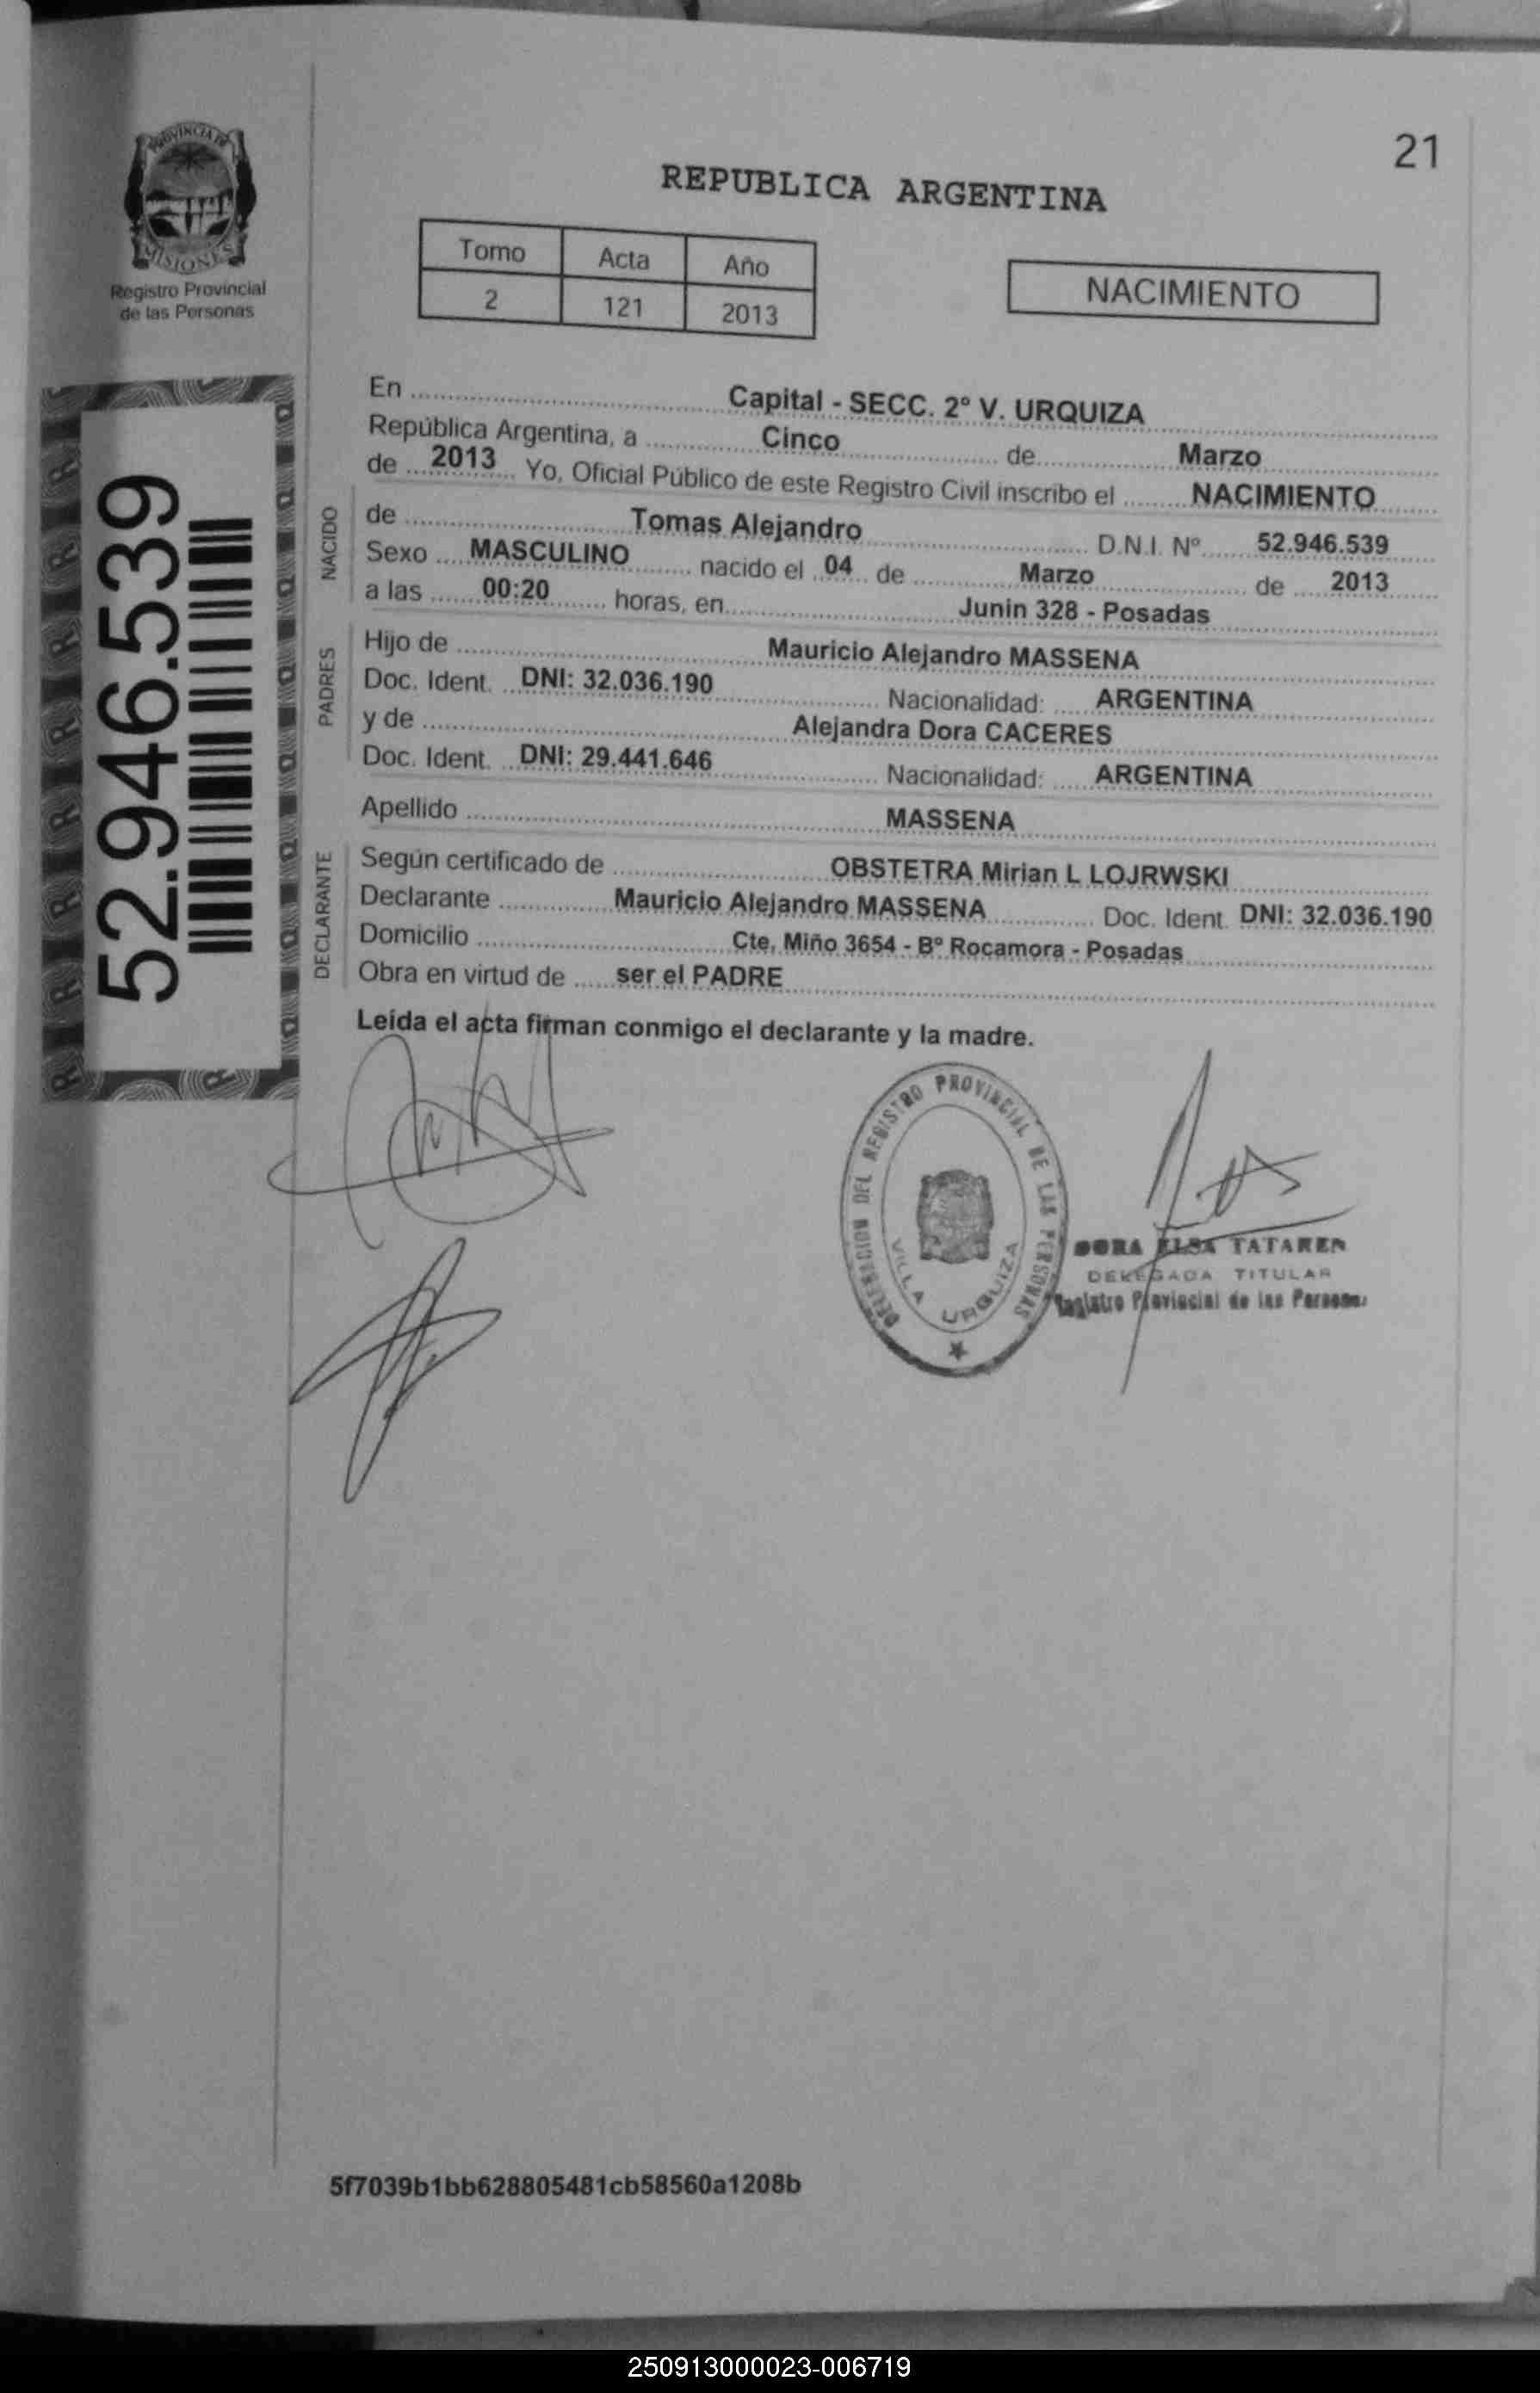 21
PROVINCIA DE
MISIONES
Registro Provincial
de las Personas
REPUBLICA ARGENTINA
Tomo Acta Año
2 121 2013
NACIMIENTO
52.946.539
En Capital - SECC. 2º V. URQUIZA
República Argentina, a Cinco de Marzo
de 2013 Yo, Oficial Público de este Registro Civil inscribo el NACIMIENTO
NACIDO
de Tomas Alejandro D.N.I. Nº 52.946.539
Sexo MASCULINO nacido el 04 de Marzo de 2013
a las 00:20 horas, en Junin 328 - Posadas
PADRES
Hijo de Mauricio Alejandro MASSENA
Doc. Ident. DNI: 32.036.190 Nacionalidad: ARGENTINA
y de Alejandra Dora CACERES
Doc. Ident. DNI: 29.441.646 Nacionalidad: ARGENTINA
Apellido MASSENA
DECLARANTE
Según certificado de OBSTETRA Mirian L LOJRWSKI
Declarante Mauricio Alejandro MASSENA Doc. Ident. DNI: 32.036.190
Domicilio Cte. Miño 3654 - Bº Rocamora - Posadas
Obra en virtud de ser el PADRE
Leída el acta firman conmigo el declarante y la madre.
DELEGACION DEL REGISTRO PROVINCIAL DE LAS PERSONAS
VILLA URQUIZA
DORA ELSA TATAREN
DELEGADA TITULAR
Registro Provincial de las Personas
5f7039b1bb628805481cb58560a1208b
250913000023-006719